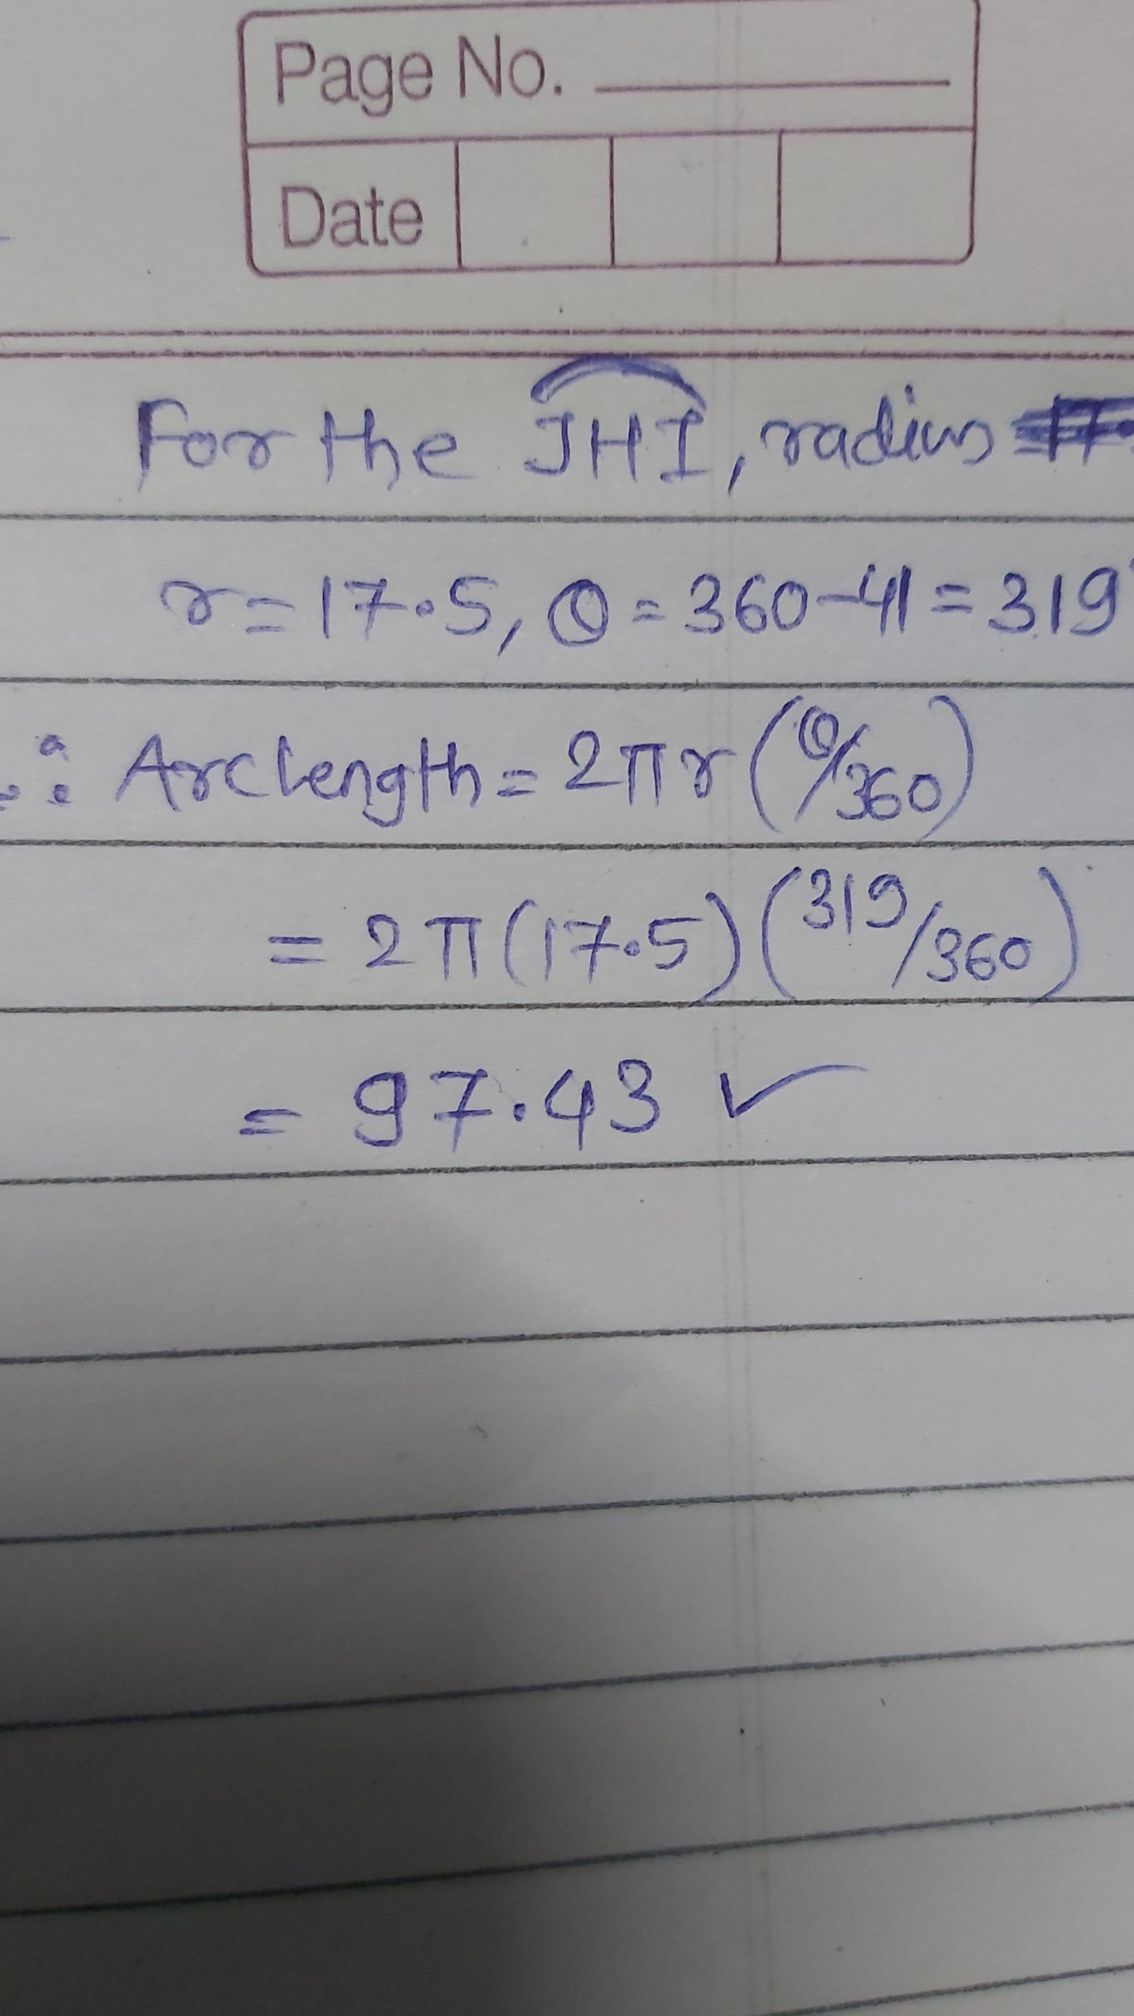 Page No.
Date
For the JHI, radius
r = 17.5, θ = 360-41 = 319°
∴ Arc length = 2πr (θ/360)
= 2π(17.5) (319/360)
= 97.43 ✓